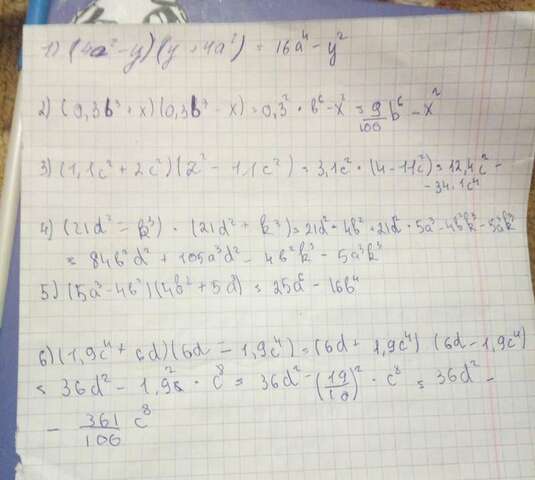 1) (4a² - y)(y + 4a²) = 16a⁴ - y²
2) (0,3b³ + x)(0,3b³ - x) = 0,3² · b⁶ - x² = 9/100 b⁶ - x²
3) (1,1c² + 2c²)(2² - 1,1c²) = 3,1c² · (4 - 1,1c²) = 12,4c² -
- 34.1c⁴
4) (21d² - k³) · (21d² + k³) = 21d² · 4b² + 21d² · 5a³ - 4b²k³ - 5a³k³
= 84b²d² + 105a³d² - 4b²k³ - 5a³k³
5) (5a³ - 4b²)(4b² + 5d³) = 25d⁶ - 16b⁴
6) (1,9c⁴ + 6d)(6d - 1,9c⁴) = (6d + 1,9c⁴) (6d - 1,9c⁴)
= 36d² - 1,9² · c⁸ = 36d² - (19/10)² · c⁸ = 36d² -
- 361/100 c⁸